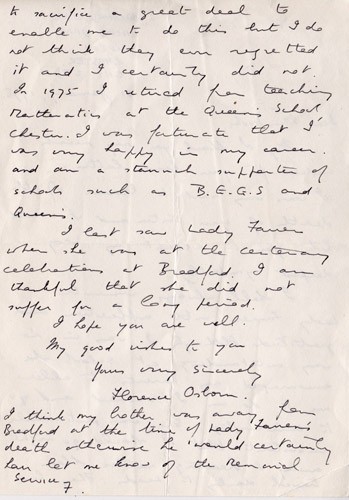 to sacrifice a great deal to
enable me to do this but I do
not think they ever regretted
it and I certainly did not.
In 1975 I retired from teaching
Mathematics at the Queen's School,
Chester. I was fortunate that I
was very happy in my career.
and am a staunch supporter of
schools such as B.E.G.S and
Queens.
I last saw Lady
when she was at the centenary
celebrations at Bradford. I am
thankful that she did not
suffer for a long period.
I hope you are well.
My good wishes to you
Yours very sincerely
Florence Osborn.
I think my brother was away from
Bradford at the time of Lady
death otherwise he would certainly
have let me know of the Memorial
Service